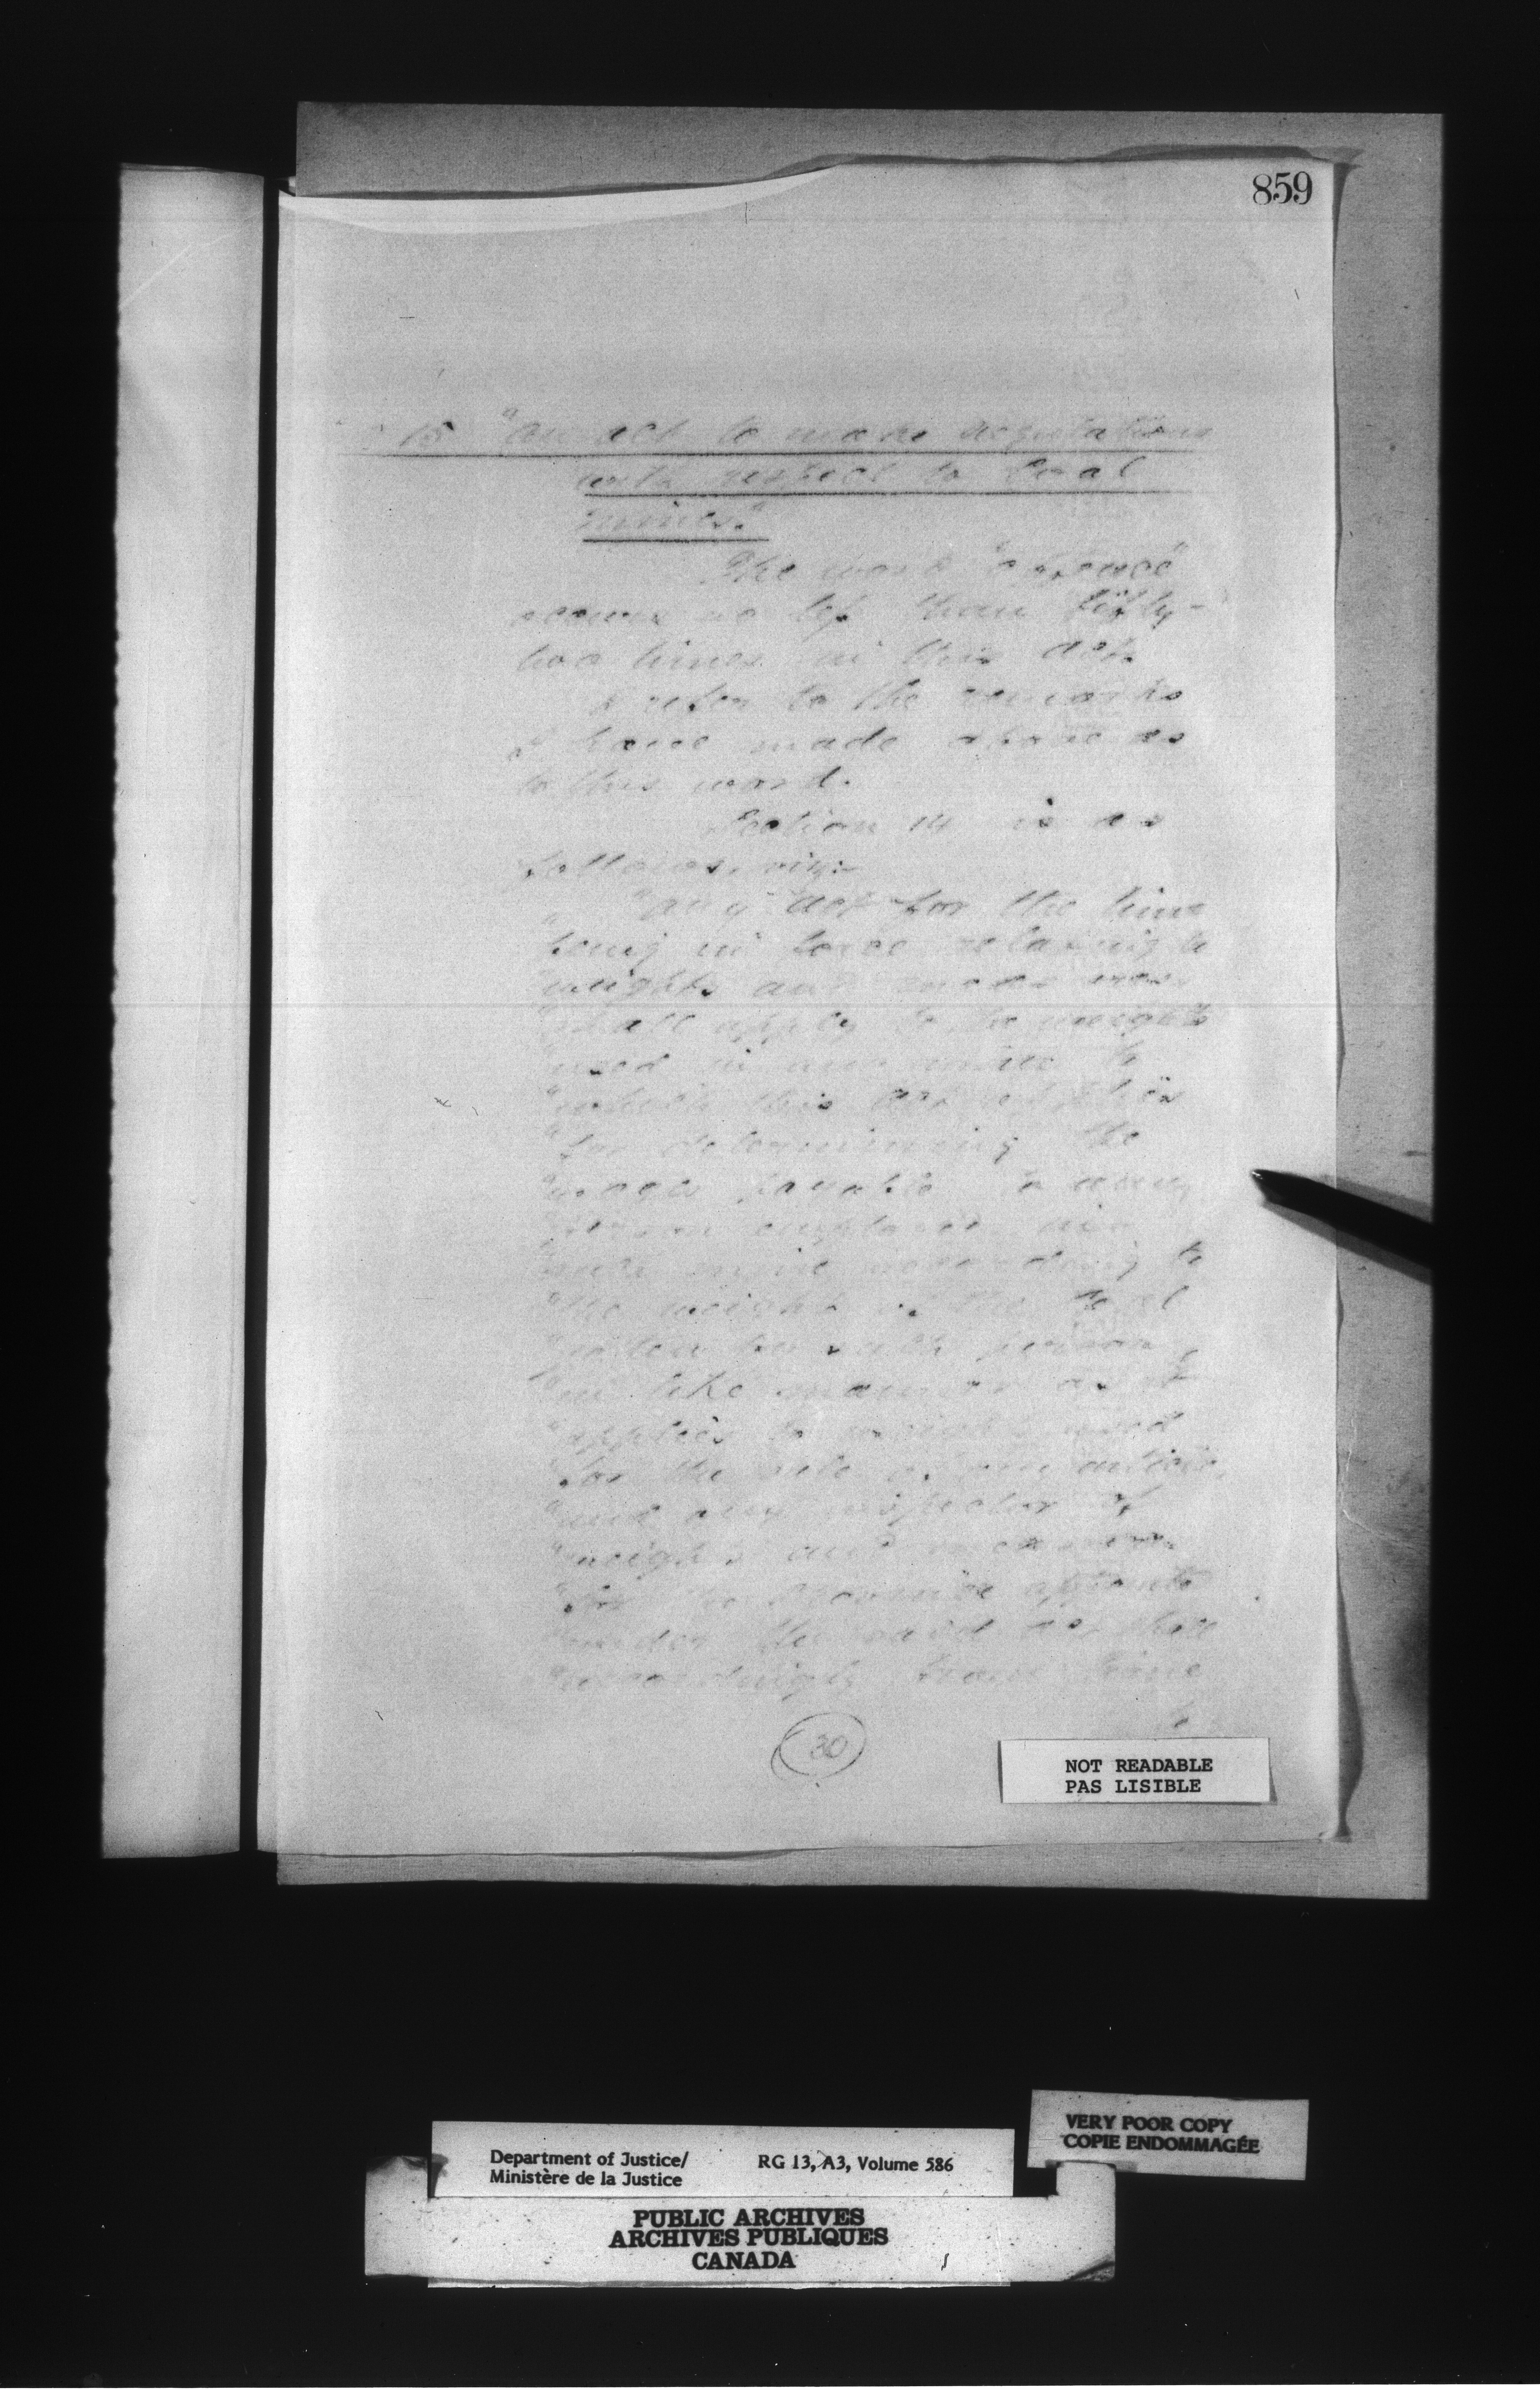 859
15 "An act to make regulations
with respect to Coal
mines."
The word "offence"
occurs no less than fifty-
two times in this act.
I refer to the remarks
I have made above as
to this word.
Section 14 is as
follows, viz:-
"Any act for the time
"being in force relating to
"weights and measures
"shall apply to the weights
"used in any mine to
"which this act applies
"for determining the
"wages payable to any
"person employed in
"such mine according to
"the weight of the Coal
"gotten by such person
"in like manner as it
"applies to weights used
"for the sale of any article,
"and any inspector of
"weights and measures
"for the Province appointed
"under the said act shall
"accordingly from time
30
NOT READABLE
PAS LISIBLE
VERY POOR COPY
COPIE ENDOMMAGÉE
Department of Justice/ RG 13, A3, Volume 586
Ministère de la Justice
PUBLIC ARCHIVES
ARCHIVES PUBLIQUES
CANADA